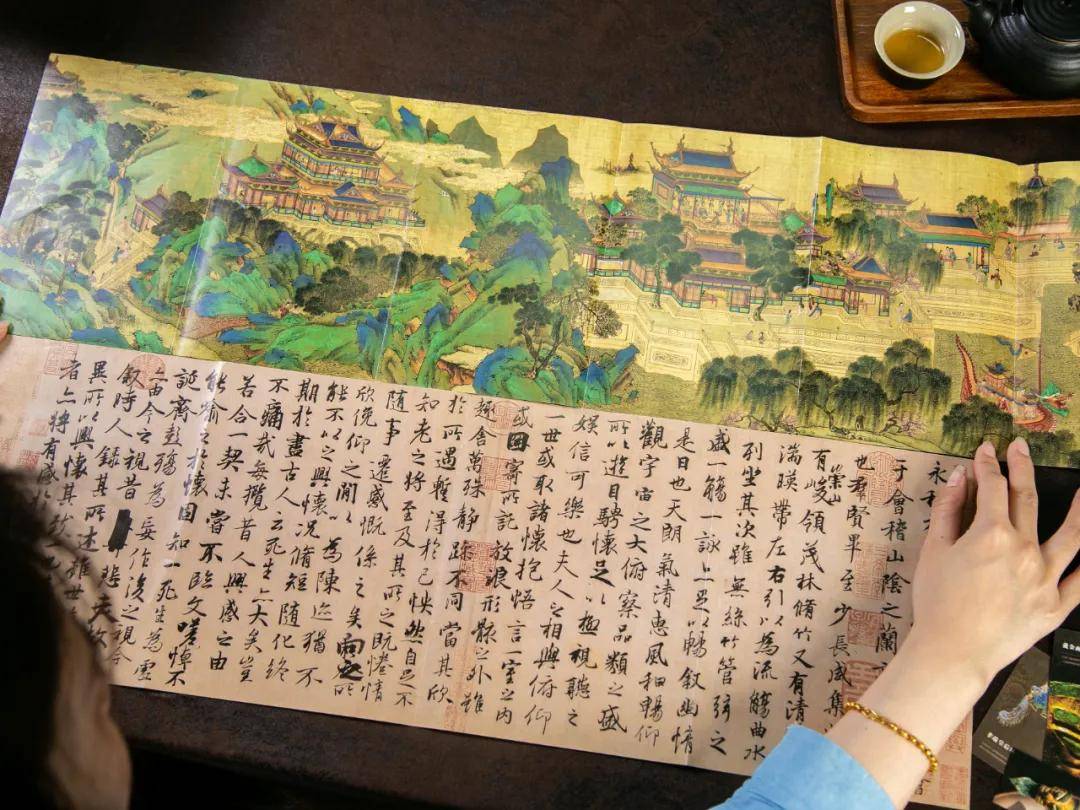 永和
于會稽山陰之蘭
也羣賢畢至少長咸集
有崇山峻領茂林脩竹又有清
湍暎帶左右引以為流觴曲水
列坐其次雖無絲竹管弦之
盛一觴一詠亦足以暢敘幽情
是日也天朗氣清惠風和暢仰
觀宇宙之大俯察品類之盛
所以遊目騁懷足以極視聽之
娛信可樂也夫人之相與俯仰
一世或取諸懷抱悟言一室之內
或因寄所託放浪形骸之外雖
趣舍萬殊靜躁不同當其欣
於所遇暫得於己怏然自足不
知老之將至及其所之既惓情
隨事遷感慨係之矣向之所
欣俛仰之閒以為陳迹猶不
能不以之興懷況脩短隨化終
期於盡古人云死生亦大矣豈
不痛哉每攬昔人興感之由
若合一契未嘗不臨文嗟悼不
能喻之於懷固知一死生為虛
誕齊彭殤為妄作後之視今
亦由今之視昔悲夫故
敘時人錄其所述雖世
異所以興懷其致
者亦將有感於